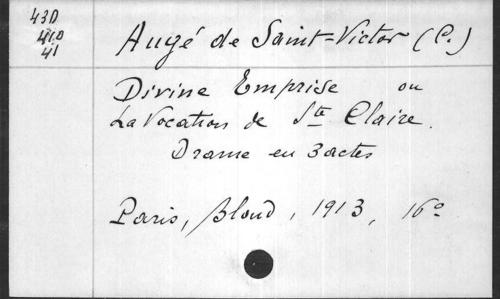 43D
410
41
Augé de Saint-Victor (C.)
Divine Emprise ou
La Vocation de Ste Claire.
Drame en 3 actes
Paris, Bloud, 1913, 16°